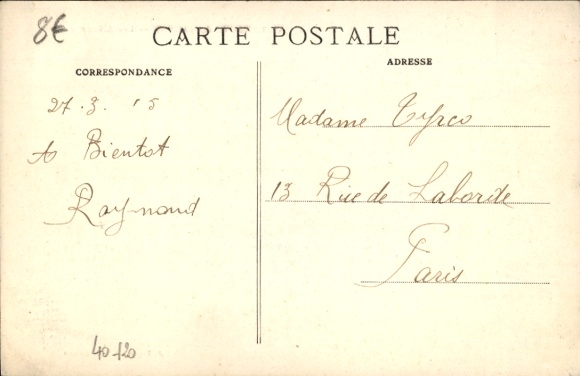 8€
CARTE POSTALE
CORRESPONDANCE
ADRESSE
27.3.15
A Bientot
Raymond
Madame Tyrco
13 Rue de Laborde
Paris
40-120